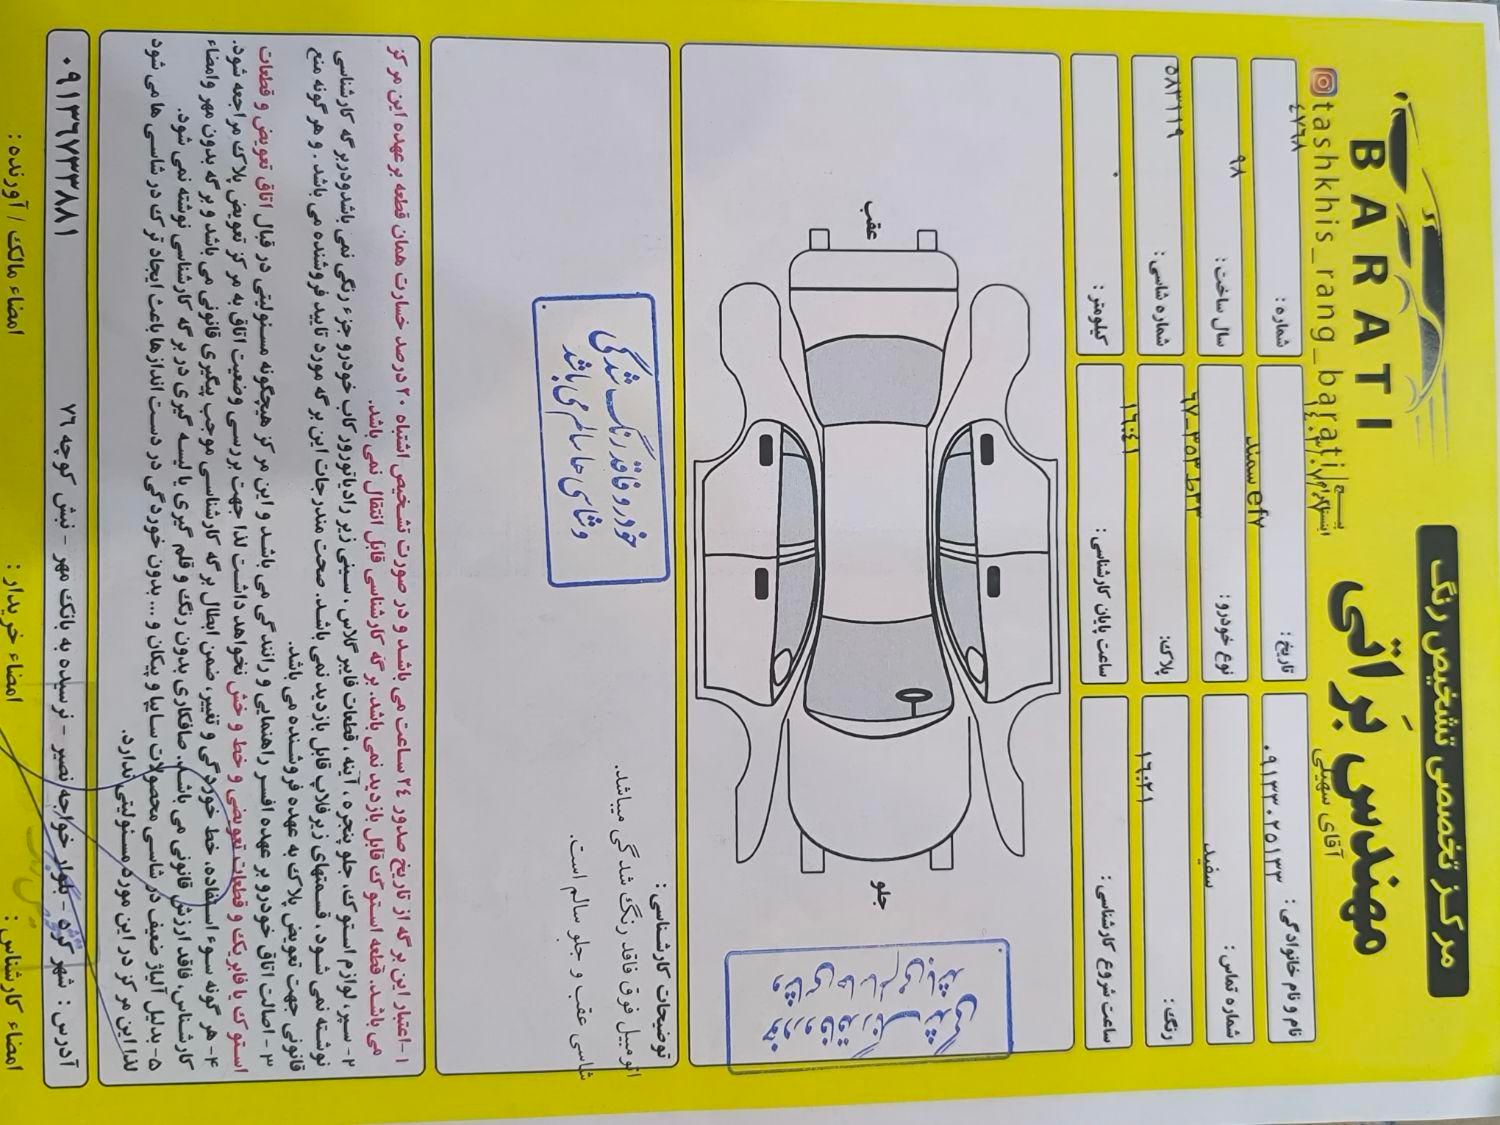 مرکز تخصصی تشخیص رنگ
مهندس بَراتی
BARATI
tashkhis_rang_barati
نام و نام خانوادگی :
آقای سهیلی
۰۹۱۳۳۰۲۵۱۳۳
تاریخ :
شماره :
۴۷۶۸
شماره تماس :
نوع خودرو :
سمند ef7
سال ساخت :
۹۸
رنگ :
سفید
پلاک:
شماره شاسی :
۵۸۳۱۱۹
ساعت شروع کارشناسی :
۱۶:۲۱
ساعت پایان کارشناسی:
۱۶:۴۱
کیلومتر :
۰
عقب
جلو
خودرو فاقد رنگ شدگی
و شاسی ها سالم می باشد
توضیحات کارشناسی :
اتومبیل فوق فاقد رنگ شدگی میباشد.
شاسی عقب و جلو سالم است.
خودرو فاقد رنگ شدگی
و شاسی ها سالم می باشد
۱- اعتبار این برگه از تاریخ صدور ۲۴ ساعت می باشد و در صورت تشخیص اشتباه ۲۰ درصد خسارت همان قطعه بر عهده این مرکز
می باشد. قطعه استوک قابل بازدید نمی باشد. برگه کارشناسی قابل انتقال نمی باشد.
۲- سپر، لوازم استوک، جلو پنجره ، آینه ، قطعات فایبر گلاس . سینی زیر رادیاتور و رکاب خودرو جزء رنگی نمی باشد و در برگه کارشناسی
نوشته نمی شود ، قسمتهای زیر قلاب قابل بازدید نمی باشد. صحت مندرجات این برگه مورد تایید فروشنده می باشد . و هر گونه منع
قانونی جهت تعویض پلاک به عهده فروشنده می باشد.
۳- اصالت اتاق خودرو بر عهده افسر راهنمایی و رانندگی می باشد و این مرکز هیچگونه مسئولیتی در قبال اتاق تعویض و قطعات
استوک یا فابریک و قطعات تعویضی و خط و خش نخواهد داشت لذا جهت بررسی وضعیت اتاق به مرکز تعویض پلاک مراجعه شود.
۴- هر گونه سوء استفاده، خط خوردگی و تغییر، ضمن ابطال برگه کارشناسی موجب پیگیری قانونی می باشد و برگه بدون مهر و امضاء
کارشناس، فاقد ارزش قانونی می باشد. صافکاری بدون رنگ و قلم گیری یا لیسه گیری در برگه کارشناسی نوشته نمی شود.
۵- بدلیل آلیاژ ضعیف در شاسی محصولات سایپا و پیکان و ... بدون خوردگی در دست اندازها باعث ایجاد ترک در شاسی ها می شود
لذا این مرکز در این مورد مسئولیتی ندارد.
آدرس : شهر کرد - بلوار خواجه نصیر - نرسیده به بانک مهر - نبش کوچه ۷۶
۰۹۱۳۶۷۳۳۸۸۱
امضاء کارشناس :
امضاء خریدار :
امضاء مالک / آورنده :